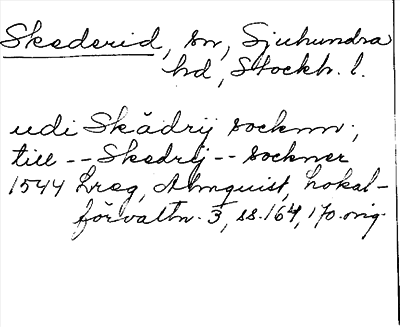 Skederid, sn, Sjuhundra
hd, Stockh. l.
udi Skådrij socknn;
till -- Skedrij -- sockner
1544 Lreg, Almquist, Lokal-
förvaltn. 3, ss. 164, 170. orig.